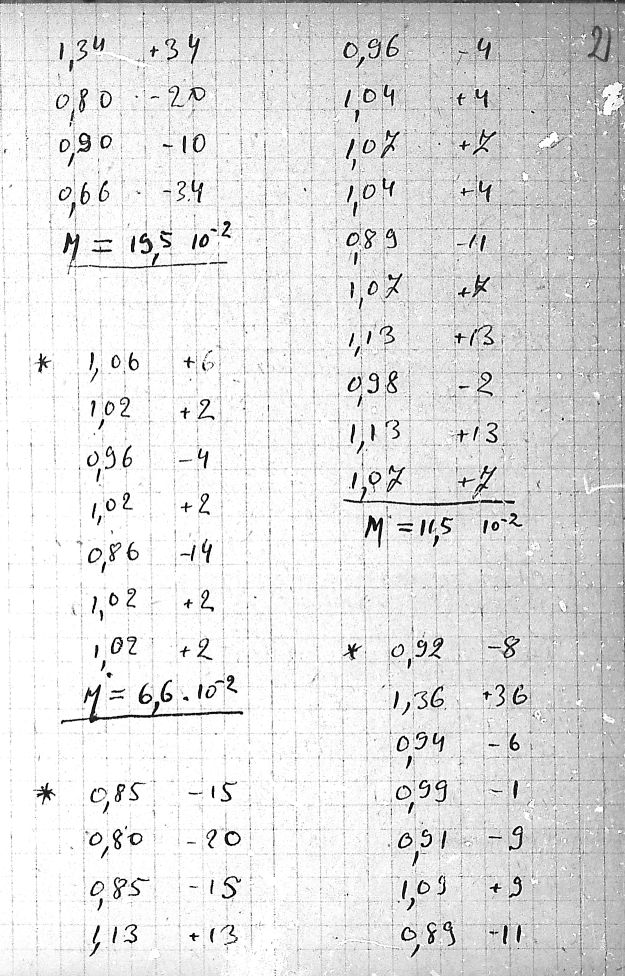 2)
1,34 +34
0,80 -20
0,90 -10
0,66 -34
M = 19,5 10⁻²
* 1,06 +6
1,02 +2
0,96 -4
1,02 +2
0,86 -14
1,02 +2
1,02 +2
M = 6,6 . 10⁻²
* 0,85 -15
0,80 -20
0,85 -15
1,13 +13
0,96 -4
1,04 +4
1,07 +7
1,04 +4
0,89 -11
1,07 +7
1,13 +13
0,98 -2
1,13 +13
1,07 +7
M = 11,5 10⁻²
* 0,92 -8
1,36 +36
0,94 -6
0,99 -1
0,91 -9
1,09 +9
0,89 -11